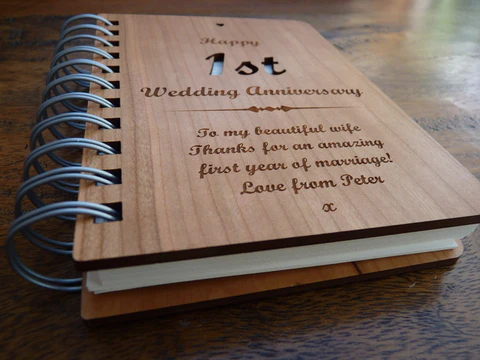 Happy
1st
Wedding Anniversary
To my beautiful wife
Thanks for an amazing
first year of marriage!
Love from Peter
x